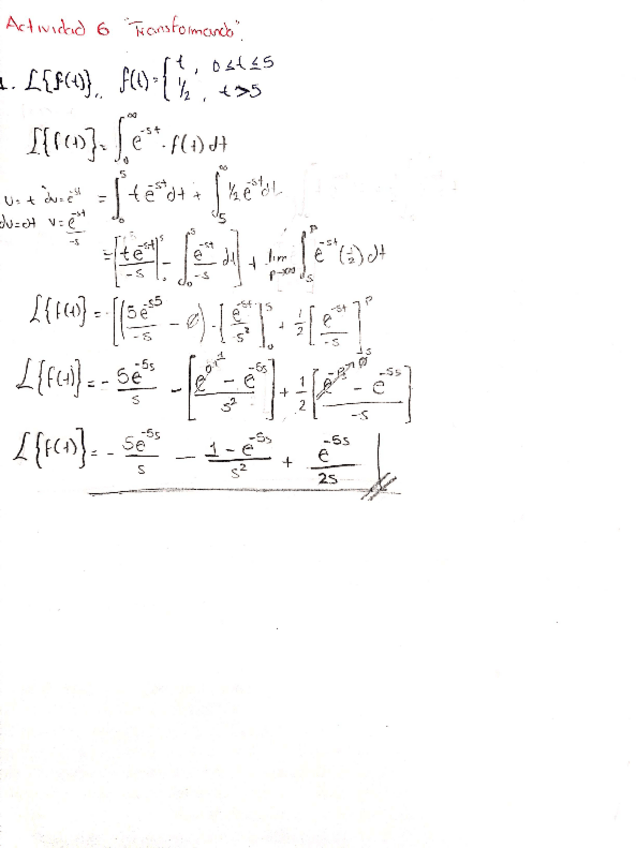 Actividad 6 "Transformando".
1. L{f(t)}, f(t)={t, 0≤t≤5
1/2, t>5
L{f(t)}=∫₀^∞ e^-st · f(t)dt
u=t dv=e^-st = ∫₀^5 te^-st dt + ∫₅^∞ 1/2 e^-st dt
du=dt v=e^-st/-s
=[te^-st/-s]^5 - ∫₀^5 e^-st/-s dt] + lim p→∞ ∫₅^p e^-st (1/2) dt
L{f(t)} = [(5e^-s5/-s - 0) - [e^-st/s²]₀^5 + 1/2 [e^-st/-s]₅^p
L{f(t)} = - 5e^-5s/s - [e^0 1 - e^-5s/s²] + 1/2 [ - e^-5s/-s]
L{f(t)} = - 5e^-5s/s - 1-e^-5s/s² + e^-5s/2s